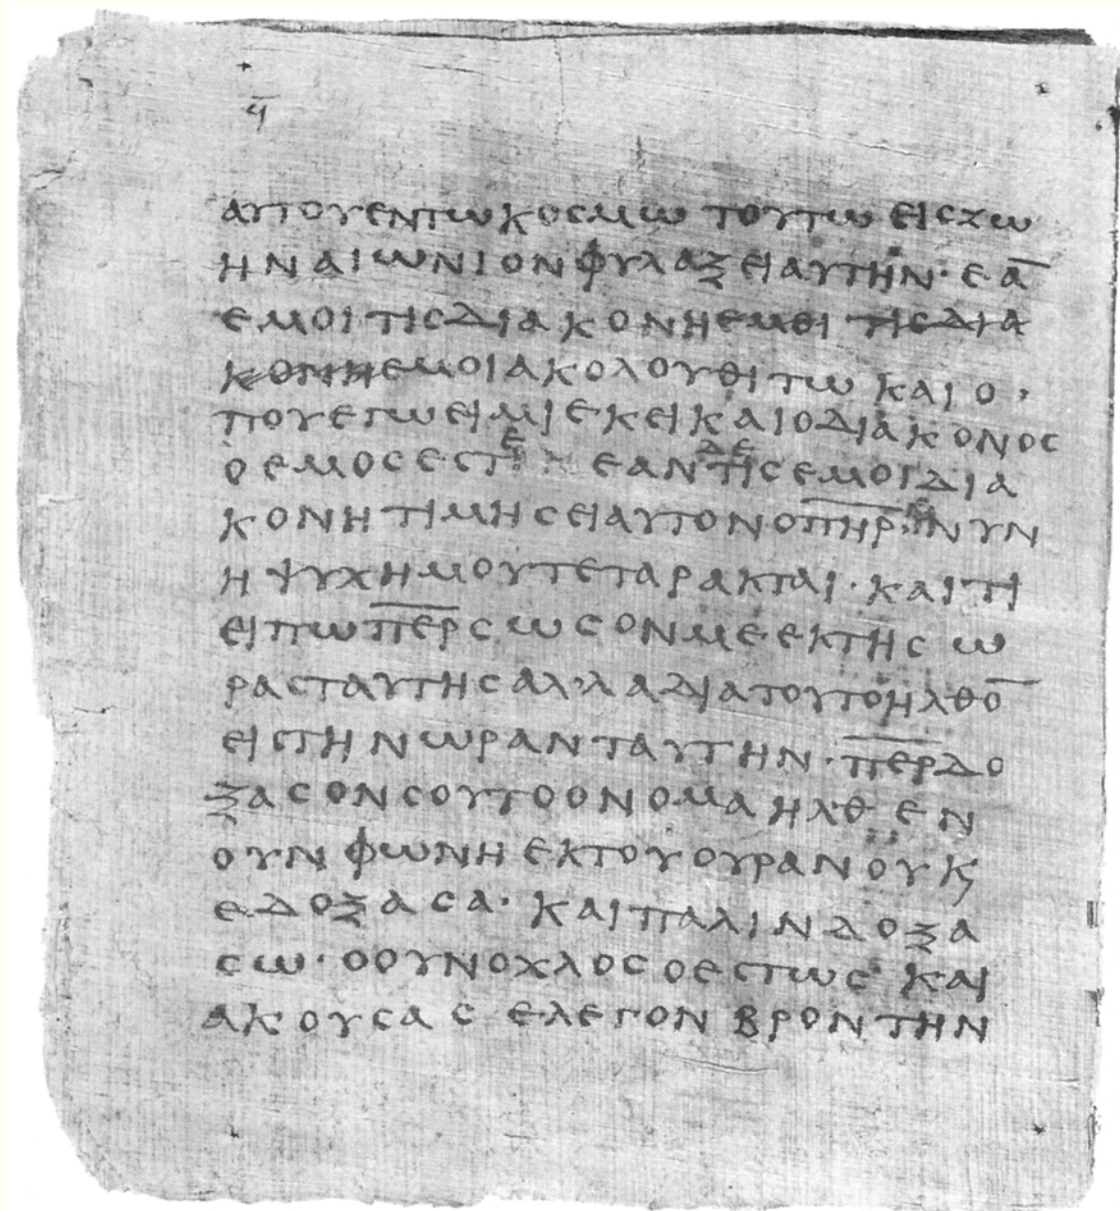 ϥ̅
ΑΥΤΟΥΕΝΤΩΚΟСΜΩ ΤΟΥΤΩ ΕΙСΖΩ
ΗΝΑΙΩΝΙΟΝΦΥΛΑΞΕΙΑΥΤΗΝ· ΕΑ̅
ΕΜΟΙΤΙСΔΙΑΚΟΝΗΕΜΟΙ ΤΙСΔΙΑ
ΚΟΝΗΕΜΟΙΑΚΟΛΟΥΘΙΤΩ ΚΑΙΟ
ΠΟΥΕΓΩΕΙΜΙΕΚΕΙΚΑΙΟΔΙΑΚΟΝΟС
ΟΕΜΟСΕСΤΕ ΕΑΝΔΕΤΙСΕΜΟΙΔΙΑ
ΚΟΝΗΤΙΜΗСΕΙΑΥΤΟΝΟΠ̅Η̅Ρ̅· ΝΥΝ
ΗΨΥΧΗΜΟΥΤΕΤΑΡΑΚΤΑΙ· ΚΑΙΤΙ
ΕΙΠΩΠ̅Ε̅Ρ̅СΩСΟΝΜΕΕΚΤΗС Ω
ΡΑСΤΑΥΤΗСΑΛ’ΛΑΔΙΑΤΟΥΤΟΗΛΘΟ̅
ΕΙСΤΗΝΩΡΑΝΤΑΥΤΗΝ·Π̅Ε̅Ρ̅ΔΟ
ΞΑСΟΝСΟΥΤΟΟΝΟΜΑΗΛΘΕΝ
ΟΥΝΦΩΝΗΕΚΤΟΥΟΥΡΑΝΟΥΚ
ΕΔΟΞΑСΑ· ΚΑΙΠΑΛΙΝΔΟΞΑ
СΩ· ΟΟΥΝΟΧΛΟСΟΕСΤΩС ΚΑΙ
ΑΚΟΥСΑС ΕΛΕΓΟΝ ΒΡΟΝΤΗΝ